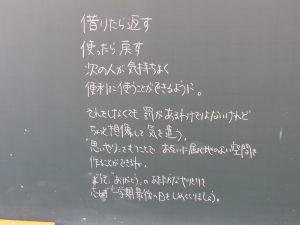 借りたら返す
使ったら戻す
次の人が気持ちよく
便利に使うことができるように。
それをしなくても 罰があるわけではないけれど
ちょっと想像して 気を遣う。
思いやりをもつことで お互いに居心地のよい空間を
作ることができる。
"どうぞ" "ありがとう" の おだやかなやりとりで
学期最後の日をしめくくりましょう。